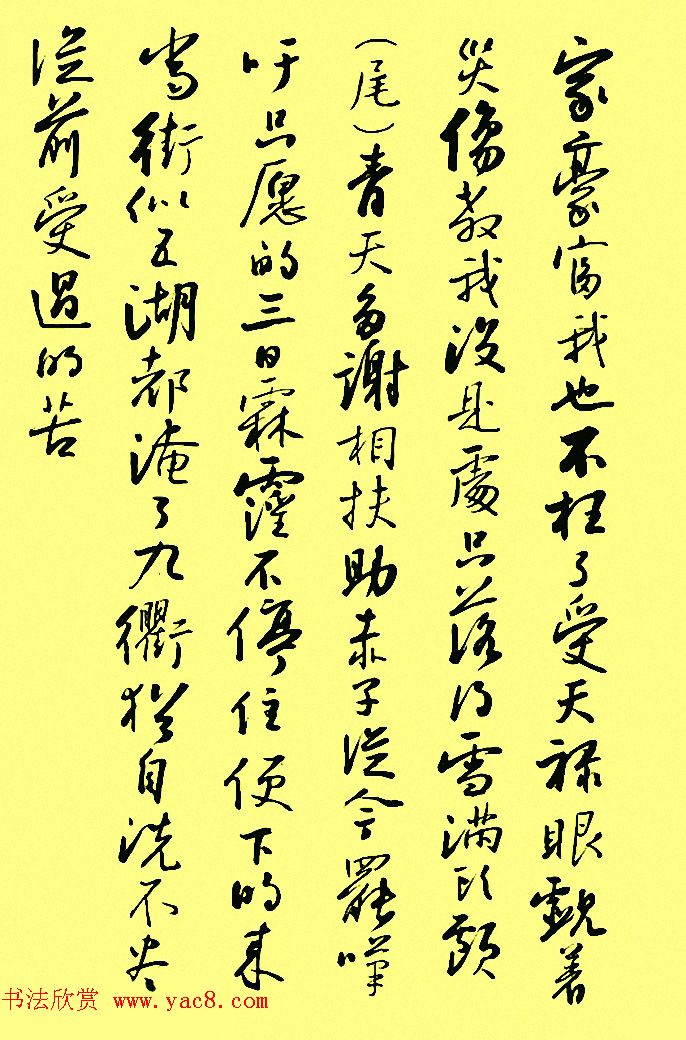 家豪富我也不枉了受天禄眼觑着
災傷教我没是處只落得雪满頭顱
(尾)青天多謝相扶助赤子從今罷嘆
吁只愿的三日霖霪不停住便下的来
當街似五湖都淹了九衢猶自洗不尽
從前受過的苦
书法欣赏 www.yac8.com